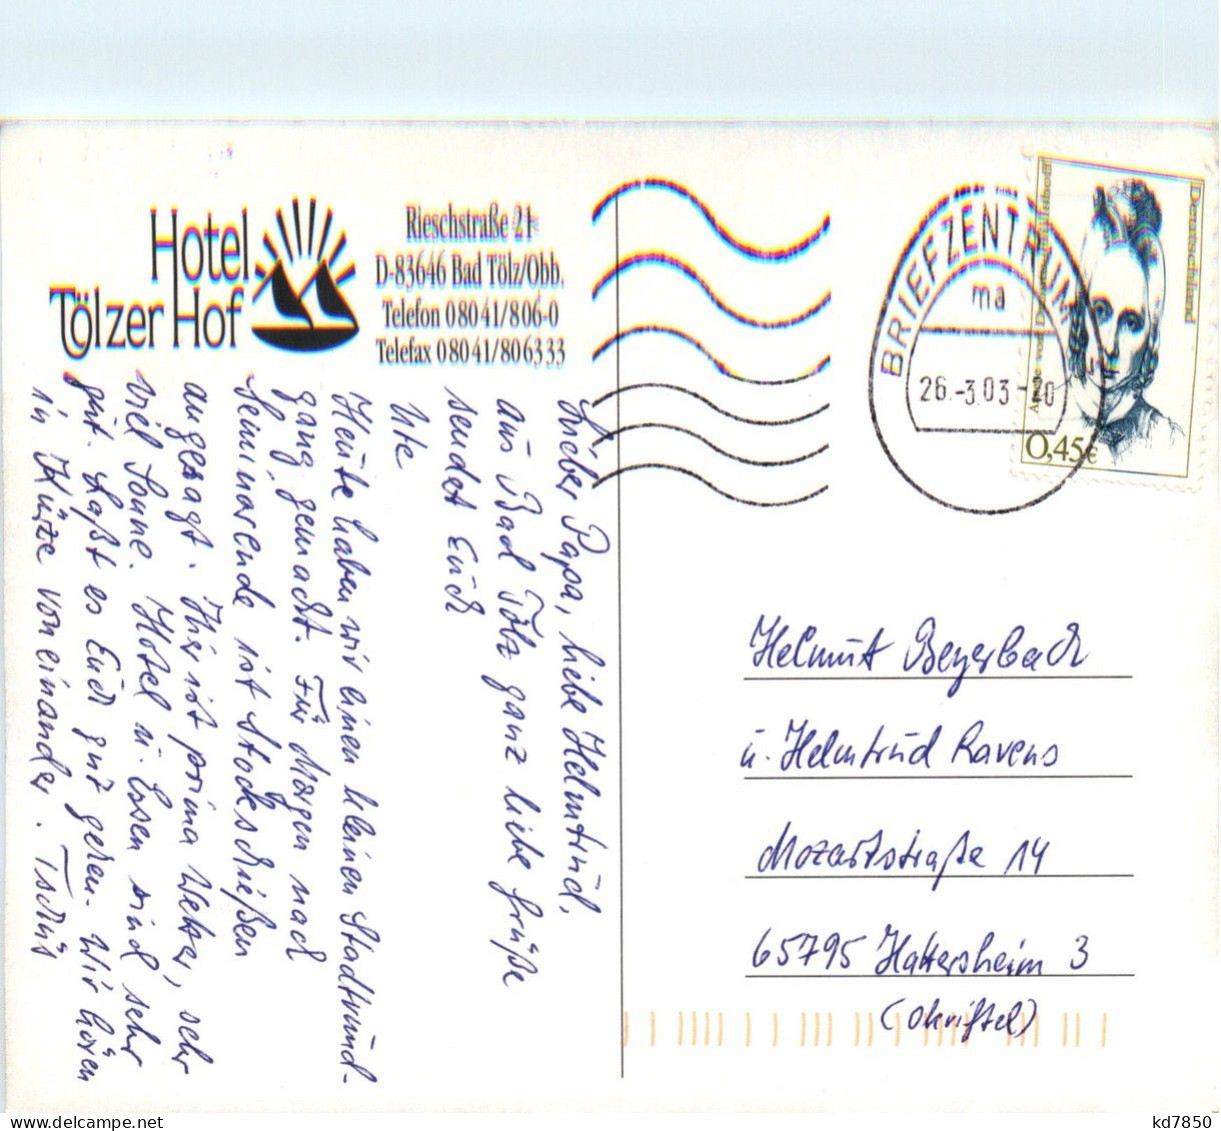 Hotel
Tölzer Hof
Rieschstraße 21
D-83646 Bad Tölz/Obb.
Telefon 08041/806-0
Telefax 08041/806333
Lieber Papa, liebe Helmtrud,
aus Bad Tölz ganz liebe Grüße
sendet Euch
Ute
Heute haben wir einen kleinen Stadtrund-
gang gemacht. Für Morgen nach
Seminarende ist Stockschießen
angesagt. Hier ist prima Wetter, sehr
viel Sonne. Hotel u. Essen sind sehr
gut. Laßt es Euch gut gehen. Wir hören
in Kürze voneinander. Tschüß
BRIEFZENTRUM
ma
26.-3.03-20
Deutschland
Annette von Droste-Hülshoff
0,45€
Helmut Beyerbach
u. Helmtrud Ravens
Mozartstraße 14
65795 Hattersheim 3
(Okriftel)
kd7850